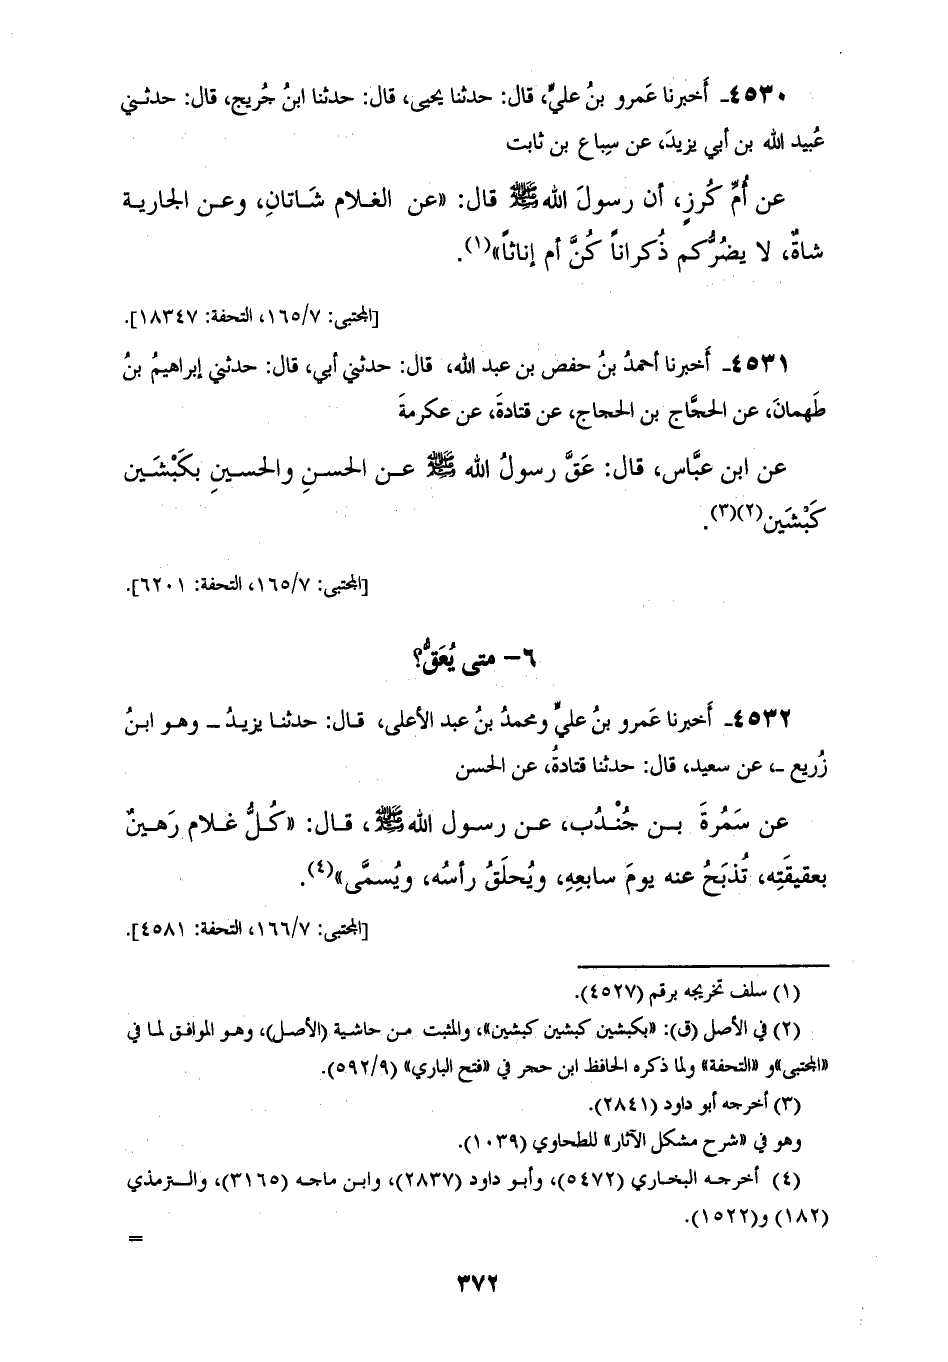 ٤٥٣٠ـ أَخبرنا عَمرو بنُ عليٍّ، قال: حدثنا يحيى، قال: حدثنا ابنُ جُريج، قال: حدثني
عُبيد الله بن أبي يزيدَ، عن سِباع بن ثابت
عن أُمِّ كُرزٍ، أن رسولَ الله ﷺ قال: «عن الغلام شَاتانِ، وعن الجارية
شاةٌ، لا يضُرُّكم ذُكراناً كُنَّ أم إناثاً»(١).
[المجتبى: ١٦٥/٧، التحفة: ١٨٣٤٧].
٤٥٣١ـ أَخبرنا أحمدُ بنُ حفص بن عبد الله، قال: حدثني أبي، قال: حدثني إبراهيمُ بنُ
طَهمانَ، عن الحجَّاج بن الحجاج، عن قتادةَ، عن عكرمةَ
عن ابن عبَّاس، قال: عَقَّ رسولُ الله ﷺ عن الحسنِ والحسينِ بكَبْشَين
كَبْشَين(٢)(٣).
[المجتبى: ١٦٥/٧، التحفة: ٦٢٠١].
٦- متى يُعَقُّ؟
٤٥٣٢ـ أَخبرنا عَمرو بنُ عليٍّ ومحمدُ بنُ عبد الأعلى، قال: حدثنا يزيدُ ـ وهو ابنُ
زُريع ـ، عن سعيد، قال: حدثنا قتادةُ، عن الحسن
عن سَمُرةَ بن جُنْدُب، عن رسول الله ﷺ، قال: «كُلُّ غلام رَهينٌ
بعقيقَتِه، تُذبَحُ عنه يومَ سابعِهِ، ويُحلَقُ رأسُه، ويُسمَّى»(٤).
[المجتبى: ١٦٦/٧، التحفة: ٤٥٨١].
(١) سلف تخريجه برقم (٤٥٢٧).
(٢) في الأصل (ق): «بكبشين كبشين كبشين»، والمثبت من حاشية (الأصل)، وهو الموافق لما في
«المجتبى»و «التحفة» ولما ذكره الحافظ ابن حجر في «فتح الباري» (٥٩٢/٩).
(٣) أخرجه أبو داود (٢٨٤١).
وهو في «شرح مشكل الآثار» للطحاوي (١٠٣٩).
(٤) أخرجه البخاري (٥٤٧٢)، وأبو داود (٢٨٣٧)، وابن ماجه (٣١٦٥)، والترمذي
(١٨٢) و(١٥٢٢).
=
٣٧٢